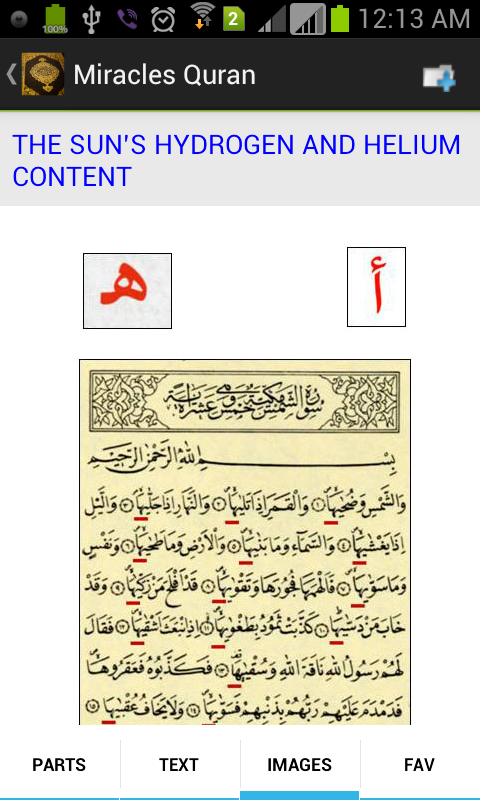 100%
2
12:13 AM
Miracles Quran
THE SUN'S HYDROGEN AND HELIUM
CONTENT
ه أ
سورة الشمس مكية وهي خمس عشرة آية
بِسْمِ اللّٰهِ الرَّحْمٰنِ الرَّحِيمِ
وَالشَّمْسِ وَضُحٰيهَا ١ وَالْقَمَرِ اِذَا تَلٰيهَا ٢ وَالنَّهَارِ اِذَا جَلّٰيهَا ٣ وَالَّيْلِ
اِذَا يَغْشٰيهَا ٤ وَالسَّمَاءِ وَمَا بَنٰيهَا ٥ وَالْاَرْضِ وَمَا طَحٰيهَا ٦ وَنَفْسٍ
وَمَا سَوّٰيهَا ٧ فَاَلْهَمَهَا فُجُورَهَا وَتَقْوٰيهَا ٨ قَدْ اَفْلَحَ مَنْ زَكّٰيهَا ٩ وَقَدْ
خَابَ مَنْ دَسّٰيهَا ١٠ كَذَّبَتْ ثَمُودُ بِطَغْوٰيهَا ١١ اِذِ انْبَعَثَ اَشْقٰيهَا ١٢ فَقَالَ
لَهُمْ رَسُولُ اللّٰهِ نَاقَةَ اللّٰهِ وَسُقْيٰهَا ١٣ فَكَذَّبُوهُ فَعَقَرُوهَا
فَدَمْدَمَ عَلَيْهِمْ رَبُّهُمْ بِذَنْبِهِمْ فَسَوّٰيهَا ١٤ وَلَا يَخَافُ عُقْبٰيهَا ١٥
PARTS TEXT IMAGES FAV